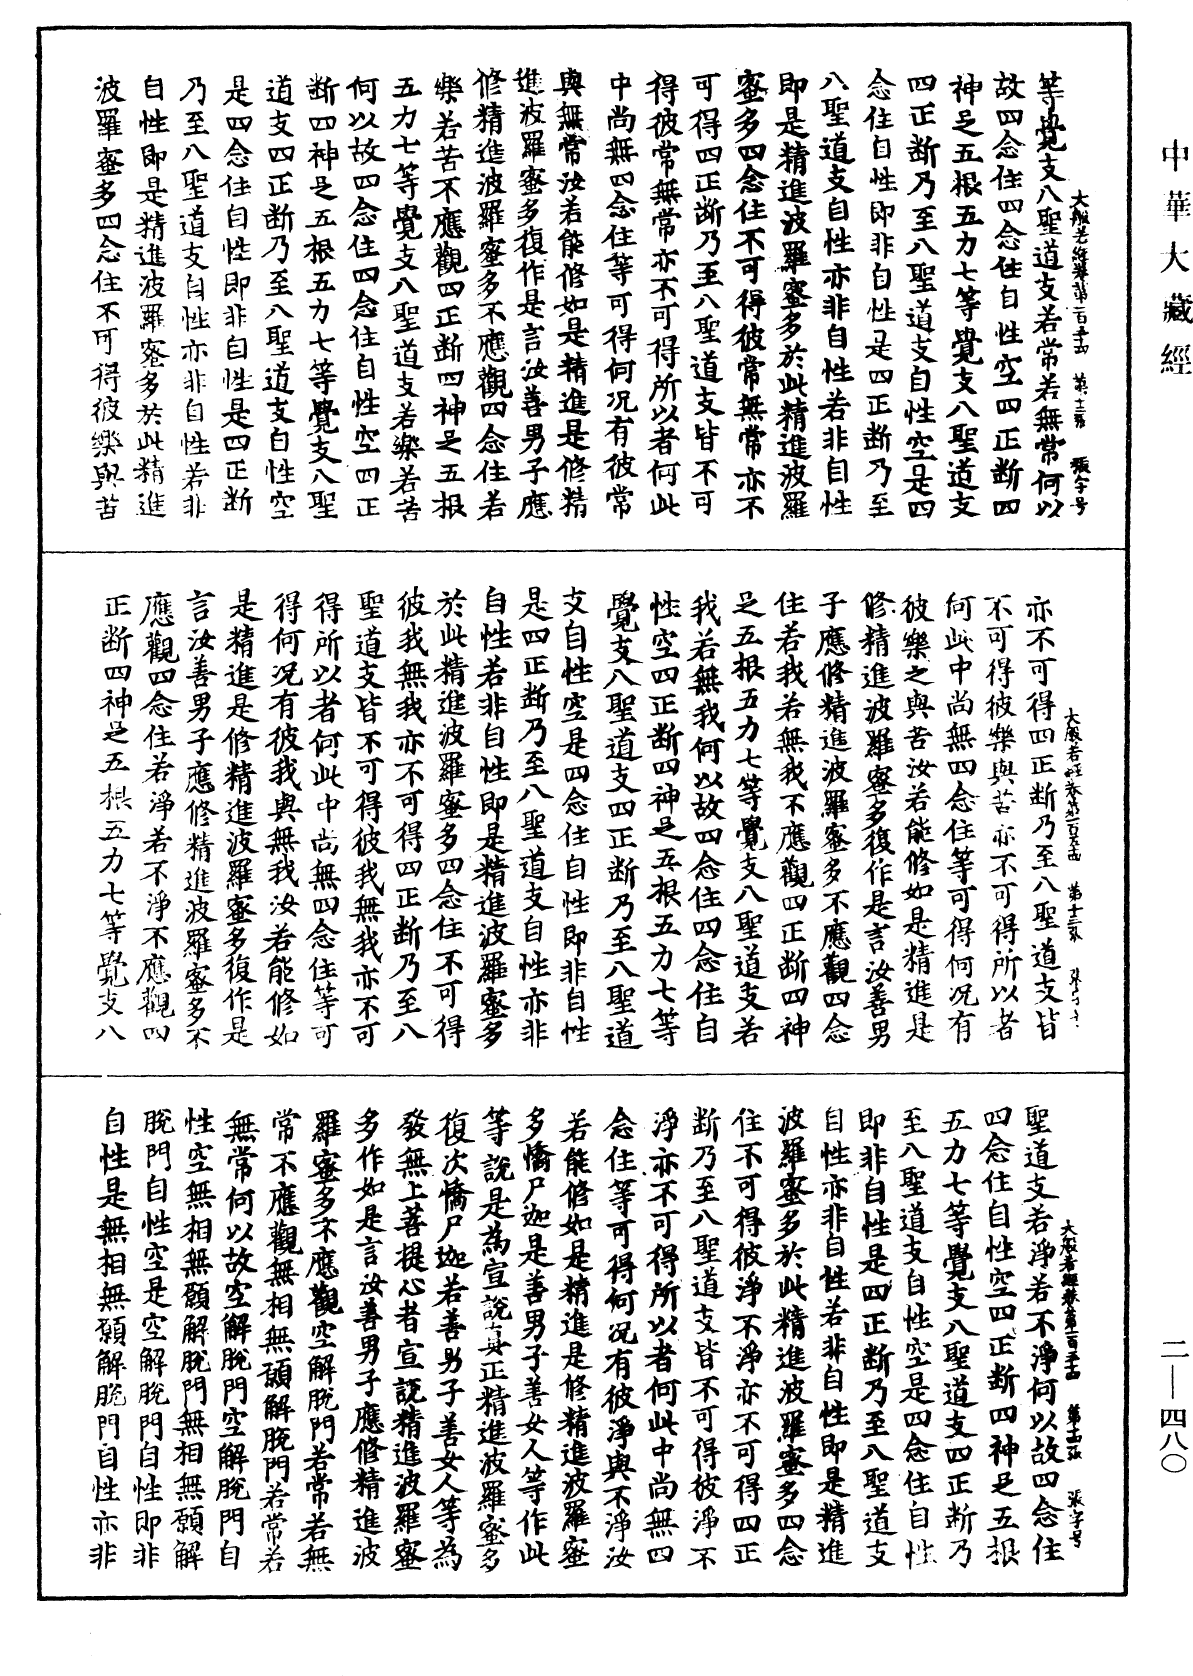 中華大藏經
大般若經卷第一百五十四 第十二張 張字号
等覺支八聖道支若常若無常何以
故四念住四念住自性空四正斷四
神足五根五力七等覺支八聖道支
四正斷乃至八聖道支自性空是四
念住自性即非自性是四正斷乃至
八聖道支自性亦非自性若非自性
即是精進波羅蜜多於此精進波羅
蜜多四念住不可得彼常無常亦不
可得四正斷乃至八聖道支皆不可
得彼常無常亦不可得所以者何此
中尚無四念住等可得何況有彼常
與無常汝若能修如是精進是修精
進波羅蜜多復作是言汝善男子應
修精進波羅蜜多不應觀四念住若
樂若苦不應觀四正斷四神足五根
五力七等覺支八聖道支若樂若苦
何以故四念住四念住自性空四正
斷四神足五根五力七等覺支八聖
道支四正斷乃至八聖道支自性空
是四念住自性即非自性是四正斷
乃至八聖道支自性亦非自性若非
自性即是精進波羅蜜多於此精進
波羅蜜多四念住不可得彼樂與苦
大般若經卷第一百五十四 第十三張
亦不可得四正斷乃至八聖道支皆
不可得彼樂與苦亦不可得所以者
何此中尚無四念住等可得何況有
彼樂之與苦汝若能修如是精進是
修精進波羅蜜多復作是言汝善男
子應修精進波羅蜜多不應觀四念
住若我若無我不應觀四正斷四神
足五根五力七等覺支八聖道支若
我若無我何以故四念住四念住自
性空四正斷四神足五根五力七等
覺支八聖道支四正斷乃至八聖道
支自性空是四念住自性即非自性
是四正斷乃至八聖道支自性亦非
自性若非自性即是精進波羅蜜多
於此精進波羅蜜多四念住不可得
彼我無我亦不可得四正斷乃至八
聖道支皆不可得彼我無我亦不可
得所以者何此中尚無四念住等可
得何況有彼我與無我汝若能修如
是精進是修精進波羅蜜多復作是
言汝善男子應修精進波羅蜜多不
應觀四念住若淨若不淨不應觀四
正斷四神足五根五力七等覺支八
大般若經卷第一百五十四 第十四張 張字号
聖道支若淨若不淨何以故四念住
四念住自性空四正斷四神足五根
五力七等覺支八聖道支四正斷乃
至八聖道支自性空是四念住自性
即非自性是四正斷乃至八聖道支
自性亦非自性若非自性即是精進
波羅蜜多於此精進波羅蜜多四念
住不可得彼淨不淨亦不可得四正
斷乃至八聖道支皆不可得彼淨不
淨亦不可得所以者何此中尚無四
念住等可得何況有彼淨與不淨汝
若能修如是精進是修精進波羅蜜
多憍尸迦是善男子善女人等作此
等說是為宣說真正精進波羅蜜多
復次憍尸迦若善男子善女人等為
發無上菩提心者宣說精進波羅蜜
多作如是言汝善男子應修精進波
羅蜜多不應觀空解脫門若常若無
常不應觀無相無願解脫門若常若
無常何以故空解脫門空解脫門自
性空無相無願解脫門無相無願解
脫門自性空是空解脫門自性即非
自性是無相無願解脫門自性亦非
二—四八〇